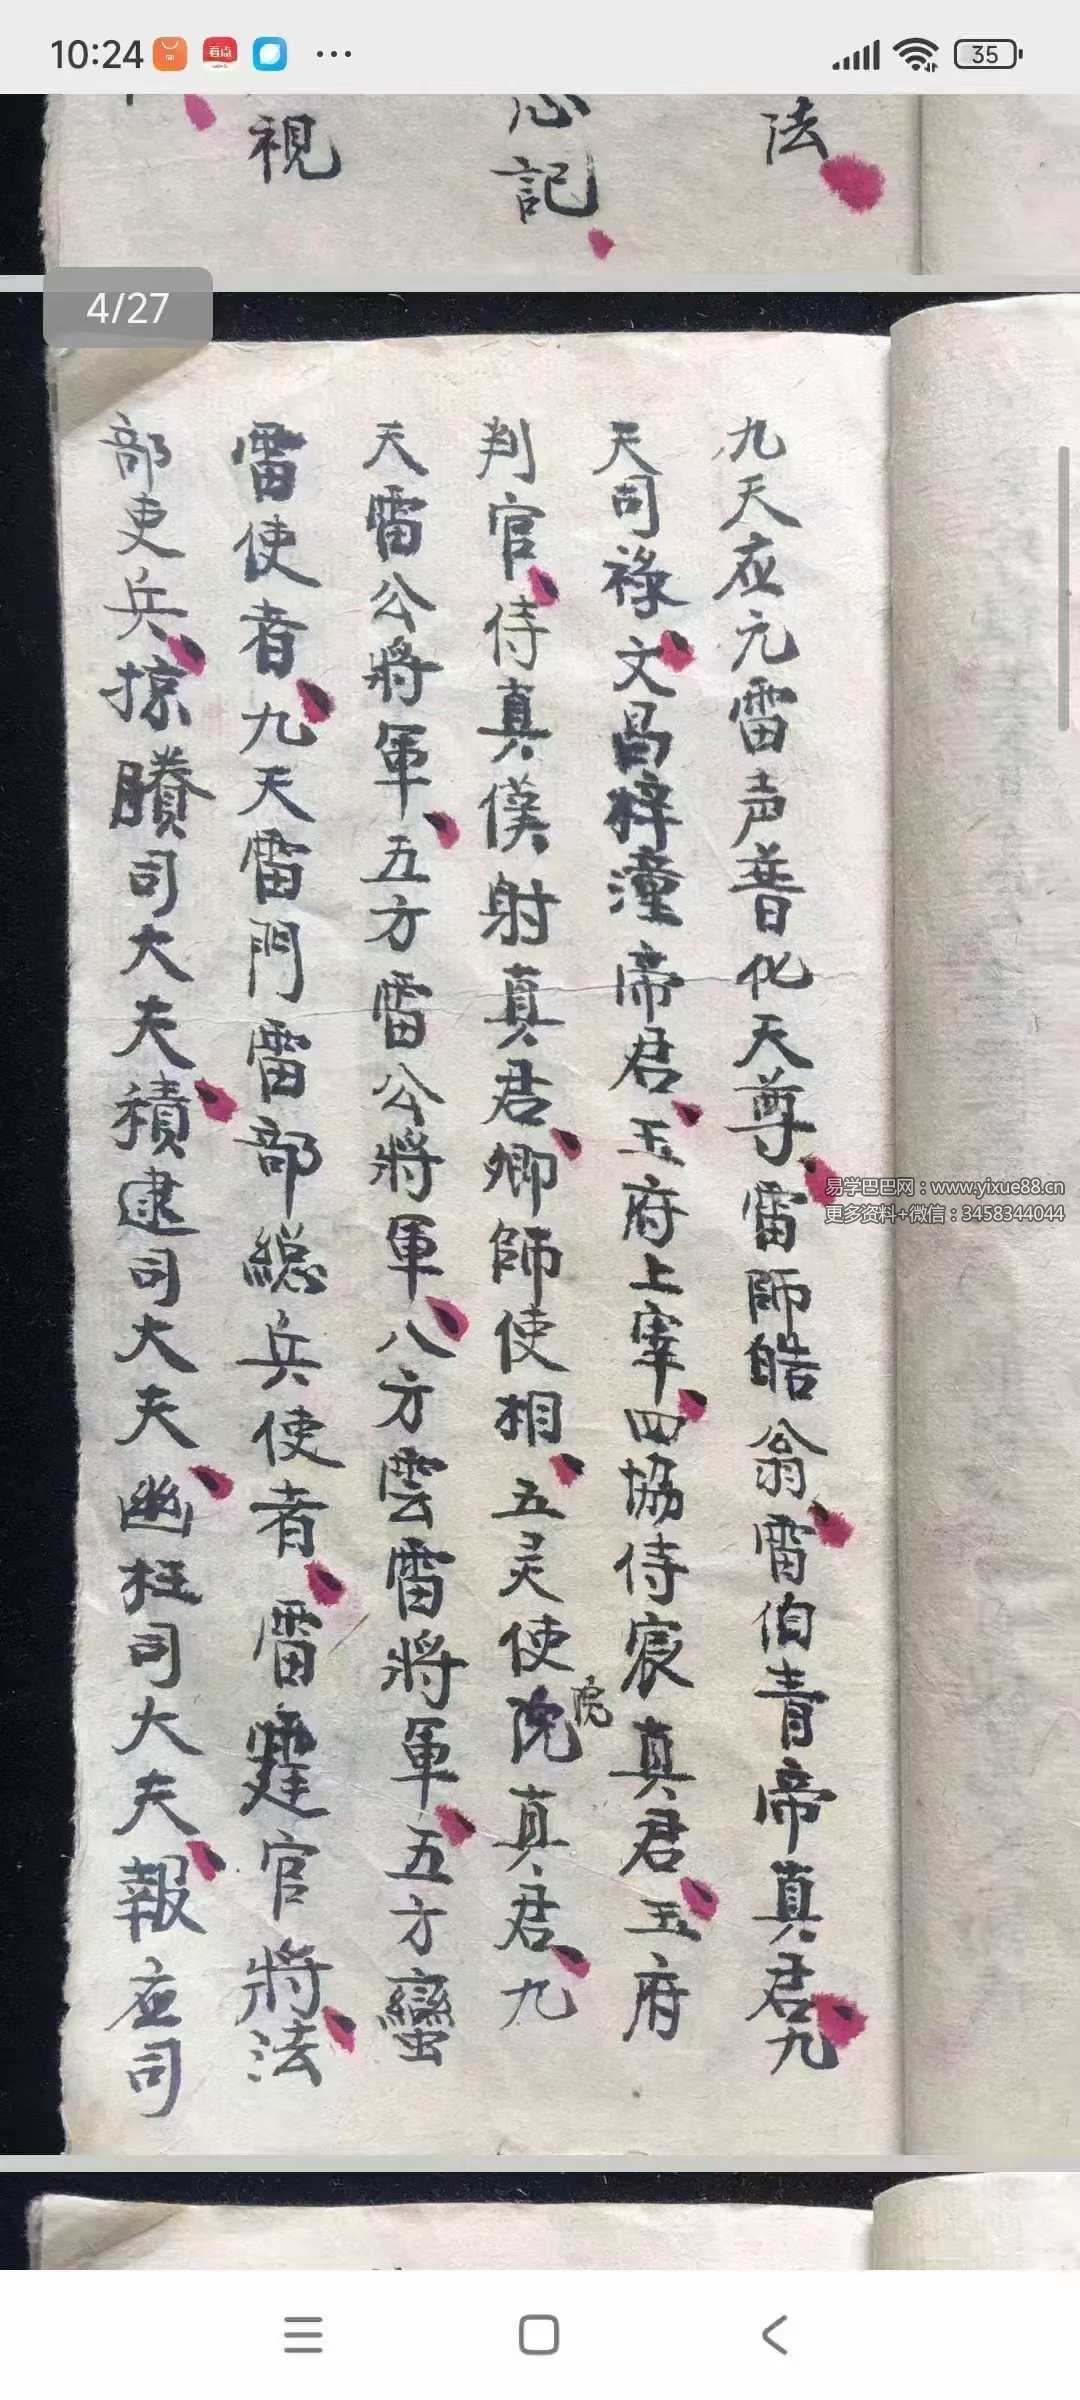 10:24
看点
35
法
忘記
視
4/27
九天应元雷声普化天尊雷師皓翁雷伯青帝真君九
天司祿文昌梓潼帝君玉府上宰四協侍宸真君玉府
判官侍真僕射真君卿師使相五灵使院真君九
院
天雷公將軍五方雷公將軍八方雲雷將軍五方蠻
雷使者九天雷門雷部總兵使者雷霆官將法
部吏兵掠賸司大夫積逮司大夫幽枉司大夫報应司
易学巴巴网：www.yixue88.cn
更多资料+微信：3458344044